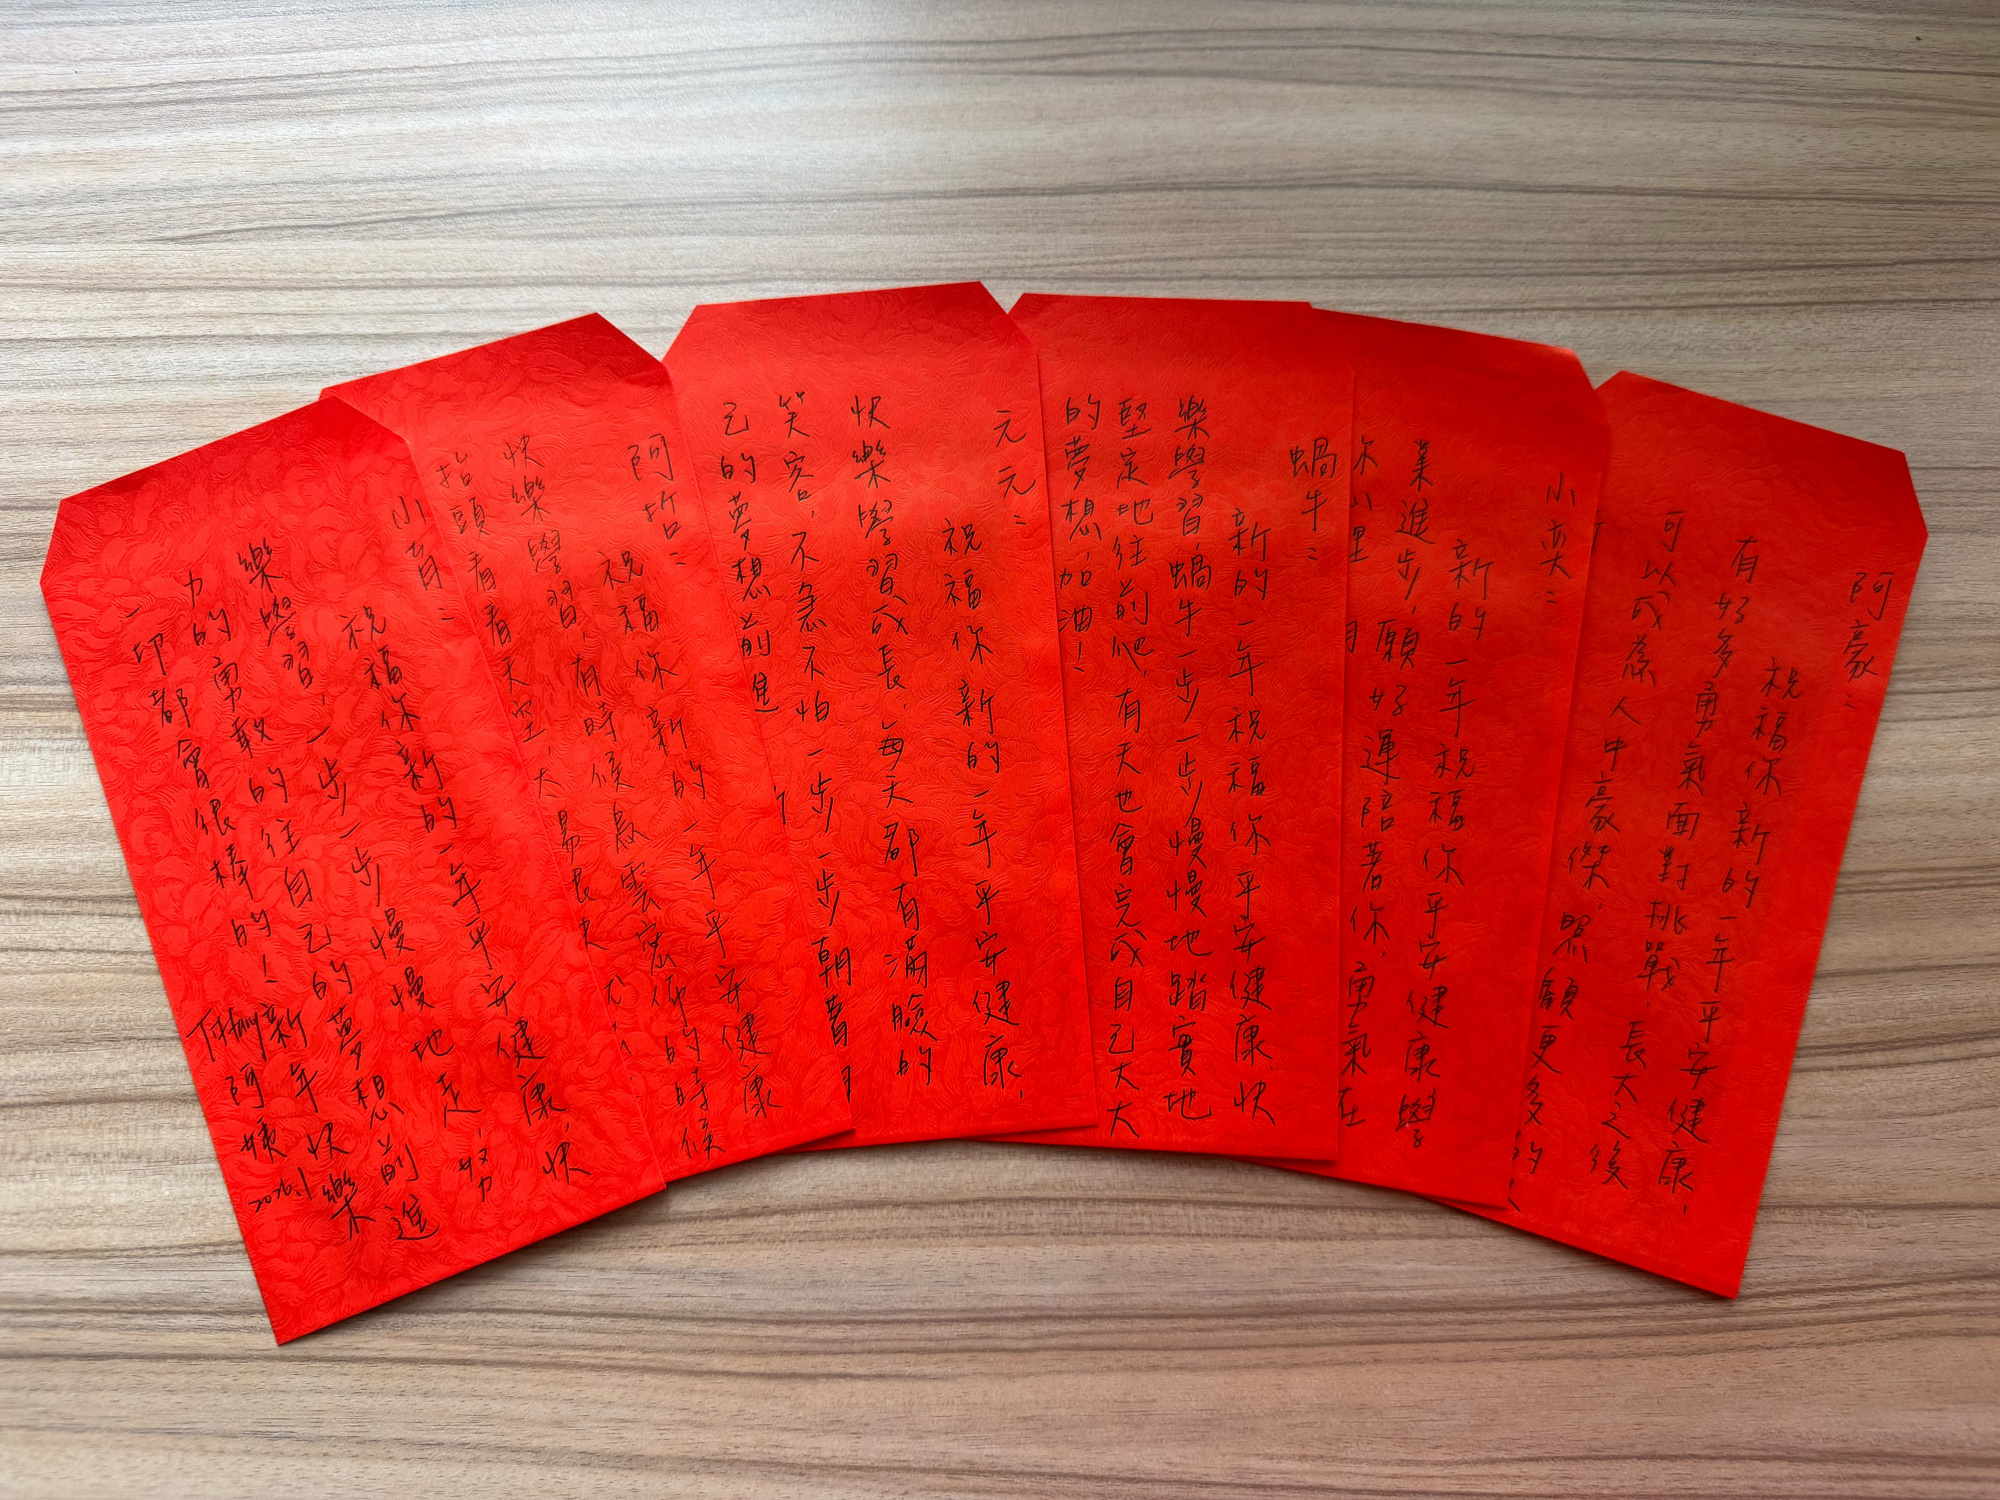 阿豪：
祝福你新的一年平安健康，
有好多勇氣面對挑戰，長大之後
可以成為人中豪傑，照顧更多的
小奕：
新的一年祝福你平安健康學
業進步，願好運陪著你，勇氣在
你心裡
蝸牛：
新的一年祝福你平安健康快
樂學習，蝸牛一步一步慢慢地踏實地
堅定地往前爬，有天也會完成自己大大
的夢想，加油！
元元：
祝福你新的一年平安健康，
快樂學習成長，每天都有滿臉的
笑容，不急不怕一步一步朝著自
己的夢想前進
阿哲：
祝福你新的一年平安健康
快樂學習，有時候烏雲密佈的時候
抬頭看看天空，太陽
小育：
祝福你新的一年平安健康，快
樂學習，一步一步慢慢地走，努
力的勇敢的往自己的夢想前進
一切都會很棒的！新年快樂
Tiffany阿姨
2026.1